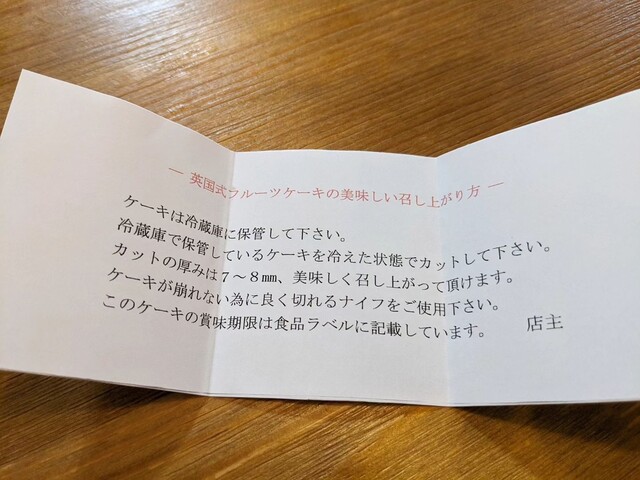 ― 英国式フルーツケーキの美味しい召し上がり方 ―
ケーキは冷蔵庫に保管して下さい。
冷蔵庫で保管しているケーキを冷えた状態でカットして下さい。
カットの厚みは７～８㎜、美味しく召し上がって頂けます。
ケーキが崩れない為に良く切れるナイフをご使用下さい。
このケーキの賞味期限は食品ラベルに記載しています。　店主